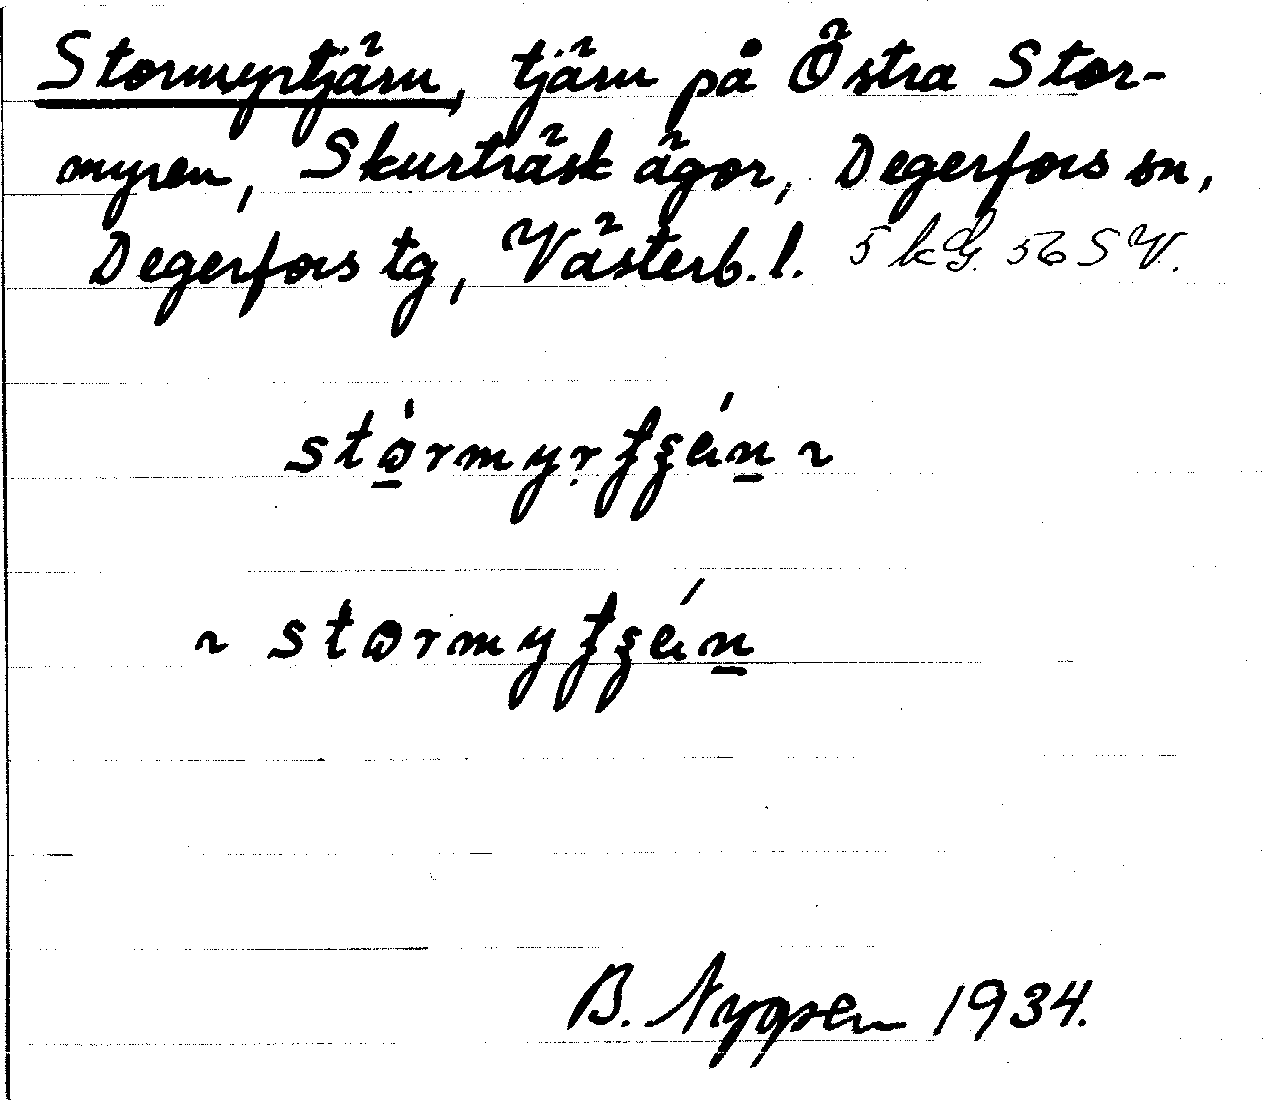 Stormyrtjärn, tjärn på Östra Stor-
myren, Skurträsk ägor, Degerfors sn,
Degerfors tg, Västerb. l. 5 kg. 56 SV.
B. Nygren 1934.